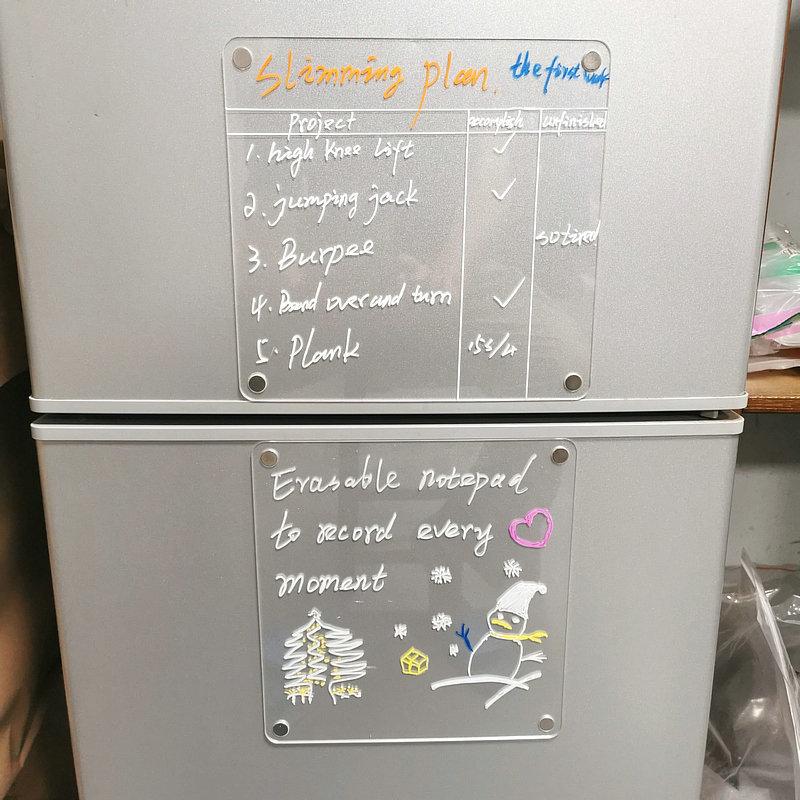 Slimming plan. the first week
Project accomplish unfinished
1. high knee lift ✓
2. jumping jack ✓
so tired
3. Burpee
4. Bend over and turn ✓
5. Plank
Erasable notepad
to record every
moment